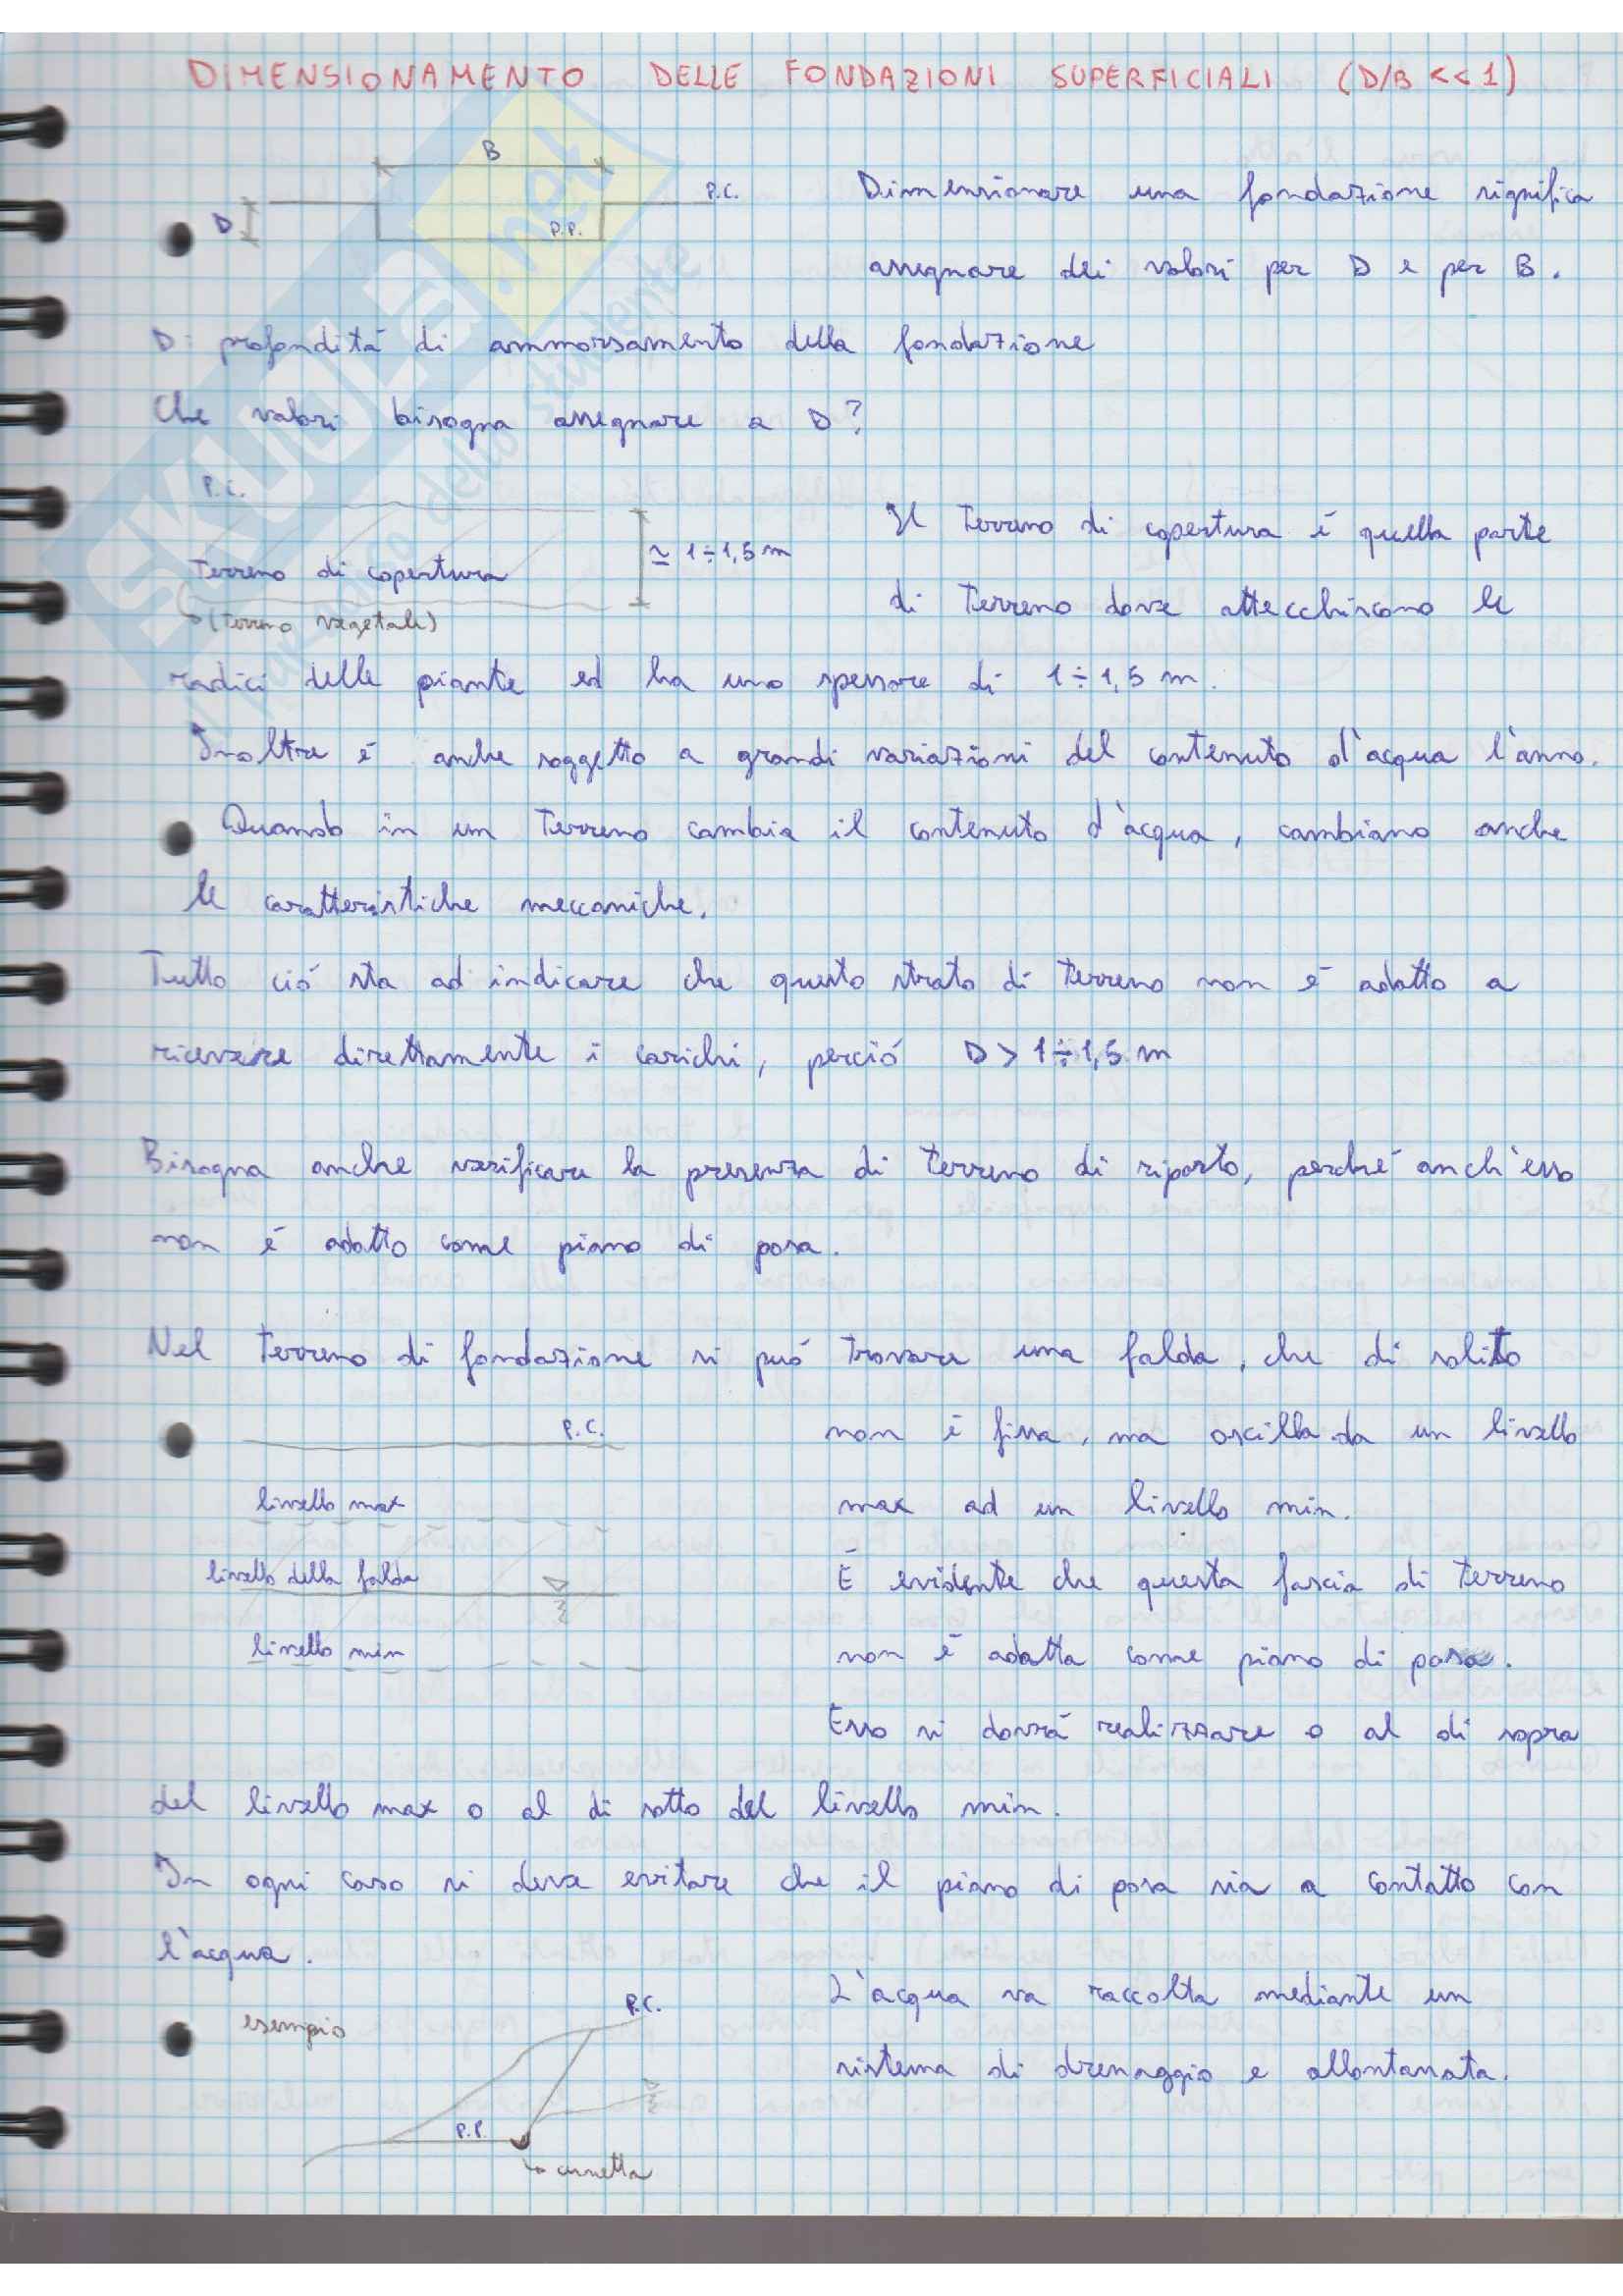 DIMENSIONAMENTO DELLE FONDAZIONI SUPERFICIALI (D/B << 1)
B
P.C.
D
P.P.
Dimensionare una fondazione significa
assegnare dei valori per D e per B.
D: profonditá di ammorsamento della fondazione
Che valori bisogna assegnare a D?
P.C.
Terreno di copertura
≃ 1÷1,5 m
(terreno vegetale)
Il terreno di copertura é quella parte
di terreno dove attecchiscono le
radici delle piante ed ha uno spessore di 1÷1,5 m.
Inoltre é anche soggetto a grandi variazioni del contenuto d'acqua l'anno.
Quando in un terreno cambia il contenuto d'acqua, cambiano anche
le caratteristiche meccaniche.
Tutto ció sta ad indicare che questo strato di terreno non é adatto a
ricevere direttamente i carichi, perció D > 1÷1,5 m
Bisogna anche verificare la presenza di terreno di riporto, perché anch'esso
non é adatto come piano di posa.
Nel terreno di fondazione si puó trovare una falda, che di solito
P.C.
livello max
livello della falda
livello min
non é fissa, ma oscilla da un livello
max ad un livello min.
É evidente che questa fascia di terreno
non é adatta come piano di posa.
Esso si dovrá realizzare o al di sopra
del livello max o al di sotto del livello min.
In ogni caso si deve evitare che il piano di posa sia a contatto con
l'acqua.
esempio
P.C.
P.P.
cunetta
L'acqua va raccolta mediante un
sistema di drenaggio e allontanata.
SKUOLA.net
dello studente